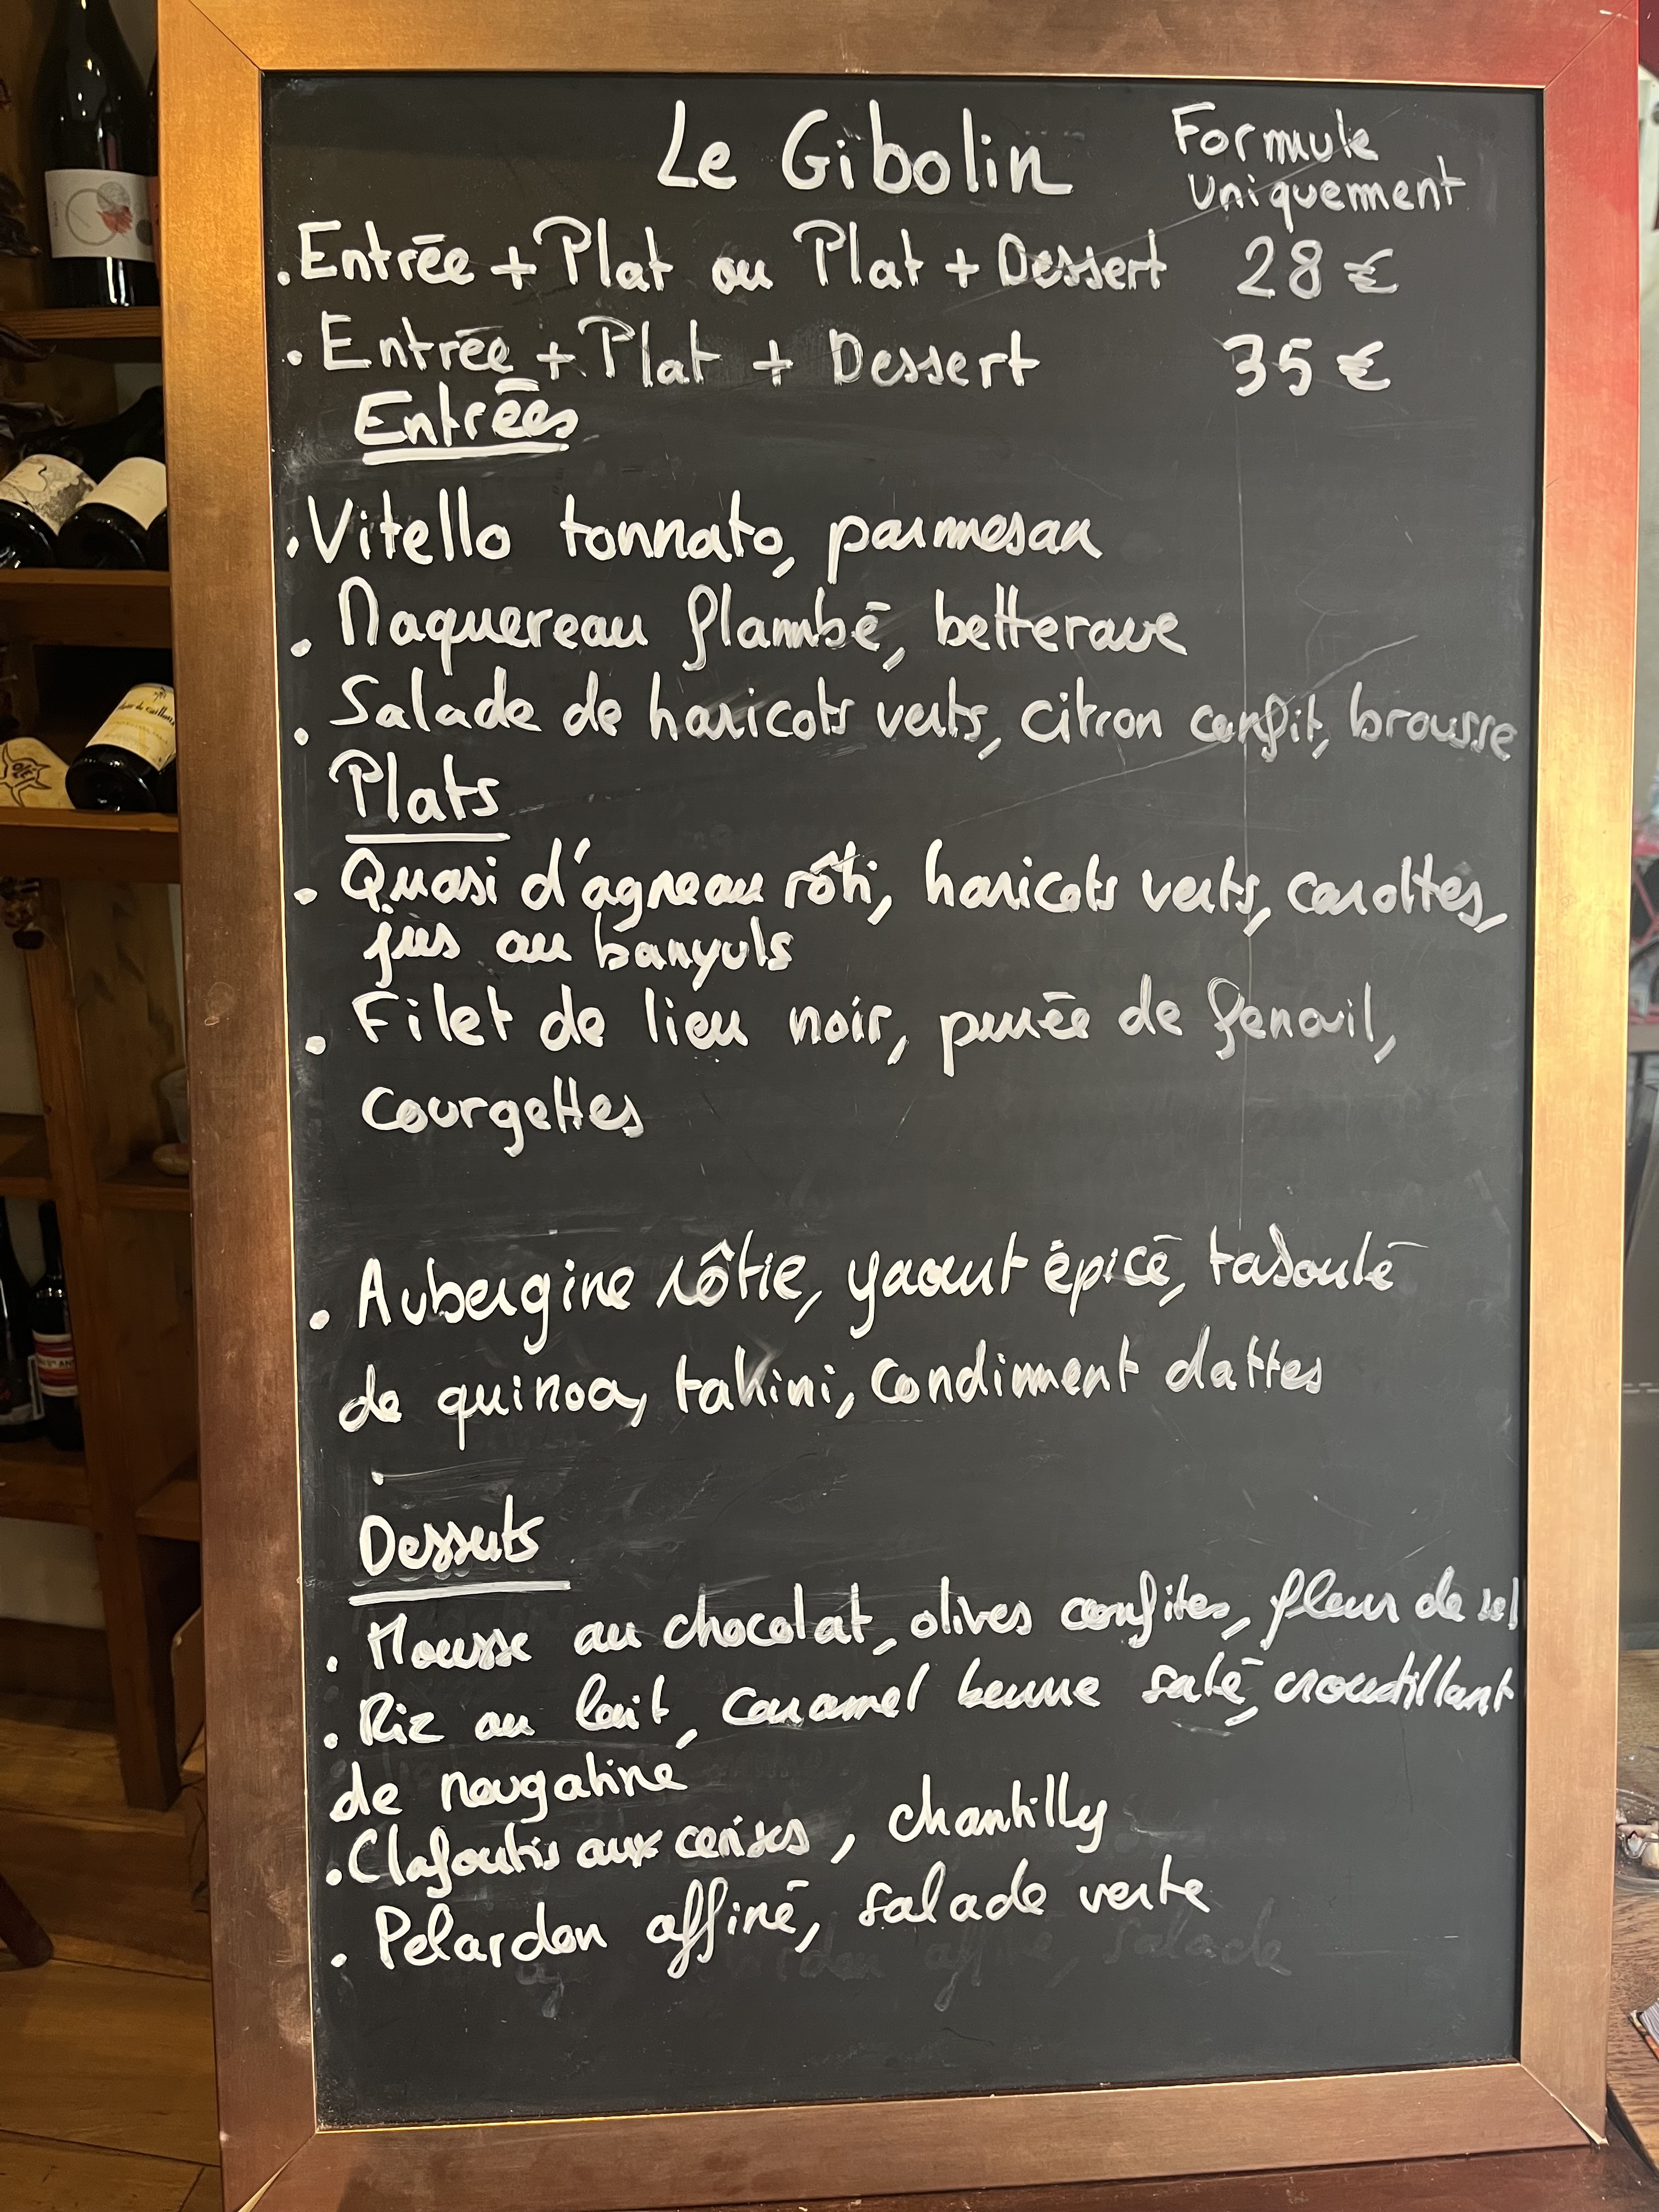 Le Gibolin
Formule
Uniquement
. Entrée + Plat ou Plat + Dessert 28 €
. Entrée + Plat + Dessert 35 €
Entrées
. Vitello tonnato, parmesan
. Maquereau flambé, betterave
. Salade de haricots verts, citron confit, brousse
Plats
. Quasi d'agneau rôti, haricots verts, carottes,
jus au banyuls
. Filet de lieu noir, purée de fenouil,
courgettes
. Aubergine rôtie, yaourt épicé, taboulé
de quinoa, tahini, condiment dattes
.
Desserts
. Mousse au chocolat, olives confites, fleur de sel
. Riz au lait, caramel beurre salé, croustillant
de nougatine
. Clafoutis aux cerises, chantilly
. Pelardon affiné, salade verte